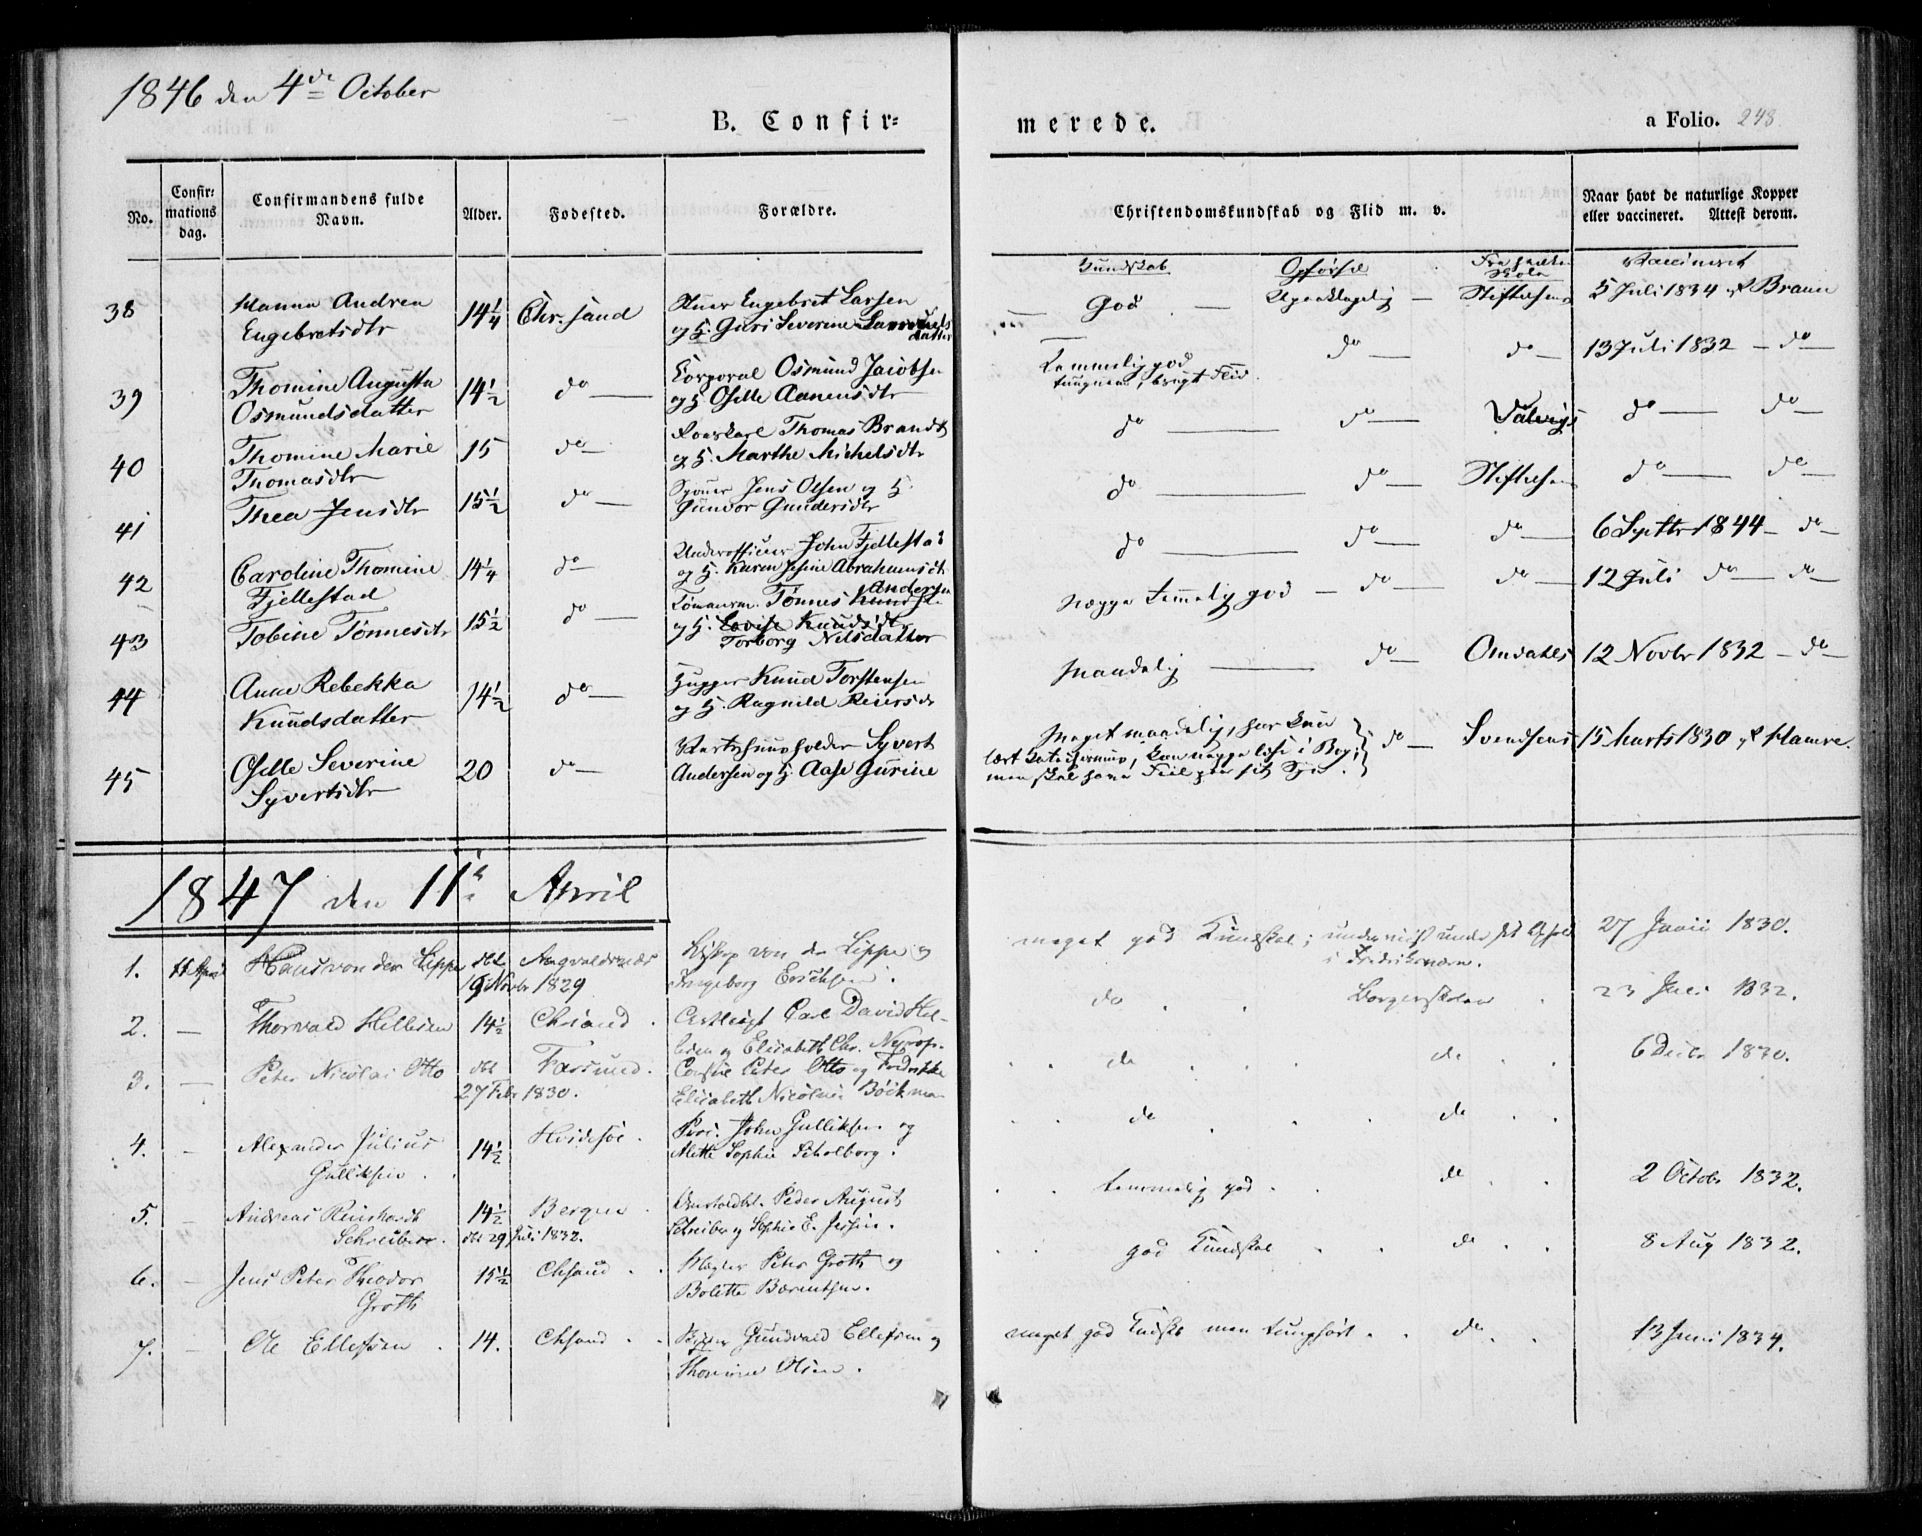 1846 den 4de October
B. Confir=
merede.
a Folio. 248
No.
Confir=
mations
dag.
Confirmandens fulde
Navn.
Alder.
Fødested.
Forældre.
Christendomskundskab og Flid m. v.
Naar havt de naturlige Kopper
eller vaccineret. Attest derom.
Kundskab
Opførsel
Fra hvilken
Skole
Vaccineret
38 Hanna Andrea 14 1/4 Chr.sand Engebret Larsen
Engebretsdtr og H. Guri Severine
datter
God — Upaaklagelig — Stiftelsens 5 Juli 1834 af Braun
39 Thomine Augusta 14 1/2 do — Corporal Osmund Jacobsen
Osmundsdatter og H. Oselle Aanensdtr
Temmelig god do — do — 13 Juli 1832 — do —
tungnem, brugt Flid
40 Thomine Marie 15 do — Thomas Brandt
Thomasdtr og H. Marthe Michelsdtr
do — do — do — do —
41 Thea Jensdtr 15 1/2 do — Jens Olsen og H.
Gunvor Gundersdtr
do — do — Stiftelsens do — do —
42 Caroline Thomine 14 1/4 do — Underofficer John Fjellestad
Fjellestad og H. Karen Jesine Abrahamsdtr
do — do — do — 6 Septbr 1844 — do —
43 Tobine Tønnesdtr 15 1/2 do — Tømmerm. Tønnes Andersen
og H. Lovise Knudsdtr
Torborg Nilsdatter
neppe temmelig god — do — do — 12 Juli do — do —
44 Anne Rebekka 14 1/2 do — Knud Torstensen
Knudsdatter og H. Ragnild Reiersdtr
Maadelig — do — Omdahls 12 Novbr 1832 — do —
45 Oselle Severine 20 do — Vertshuusholder Syvert
Syvertsdtr Andersen og H. Aase Gurine
Meget maadelig, har kun do — Svendsens 15 Marts 1830 af Hamre.
lært Catechismus, kan neppe læse i Bog;
men skal have Feil paa sit Syn.
1847 den 11te April
1. 11 April Hans von der Lippe dbt Augvaldsnæs Biskop von der Lippe og
19 Novbr 1829 Ingeborg Erichsen.
meget god Kundskab; underviist under sit Ophold 27 Junii 1830.
i Fredriksværn.
2. — Thorvald Hellesen 14 1/2 Chrsand. Carl David Hel-
lesen og Elisabeth Chr. Nyrop.
do . . Borgerskolen . 23 Juli 1832.
3. — Peter Nicolai Otto dbt Farsund. Consul Peter Otto og Fredrikke
27 Febr 1830. Elisabeth Nicoline Böckman
. . do . . do . . 6 Decbr 1830.
4. — Alexander Julius 14 1/2 Hvidesøe. John Gulliksen og
Gulliksen. Mette Sophie Scholborg.
. . do . . do . .
5. — Andreas Reinhardt 14 1/2 Bergen. Peder August
Schreiber. dbt 29 Juli 1832. Schreiber og Sophie E. Jessen.
. . temmelig god . . do . . 2 Octobr 1832.
6. — Jens Peter Theodor 15 1/2 Chsand. Mægler Peter Groth og
Groth Bolette Bærentsen.
. . god Kundskab . . do . . 8 Aug 1832.
7. — Ole Ellefsen . 14. Chsand . . Gundvald Ellefsen og
Thomine Olsen.
meget god Kundsk. men tunghört . . do . . 13 Juni 1834.